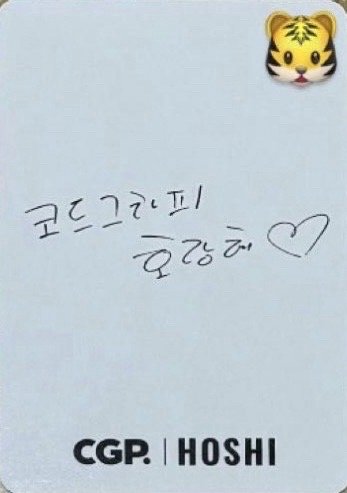 코드그라피
호랑해♡
CGP. | HOSHI